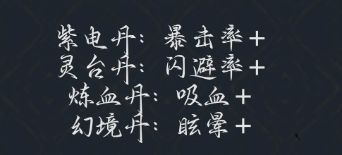 紫电丹：暴击率+
灵台丹：闪避率+
炼血丹：吸血+
幻境丹：眩晕+